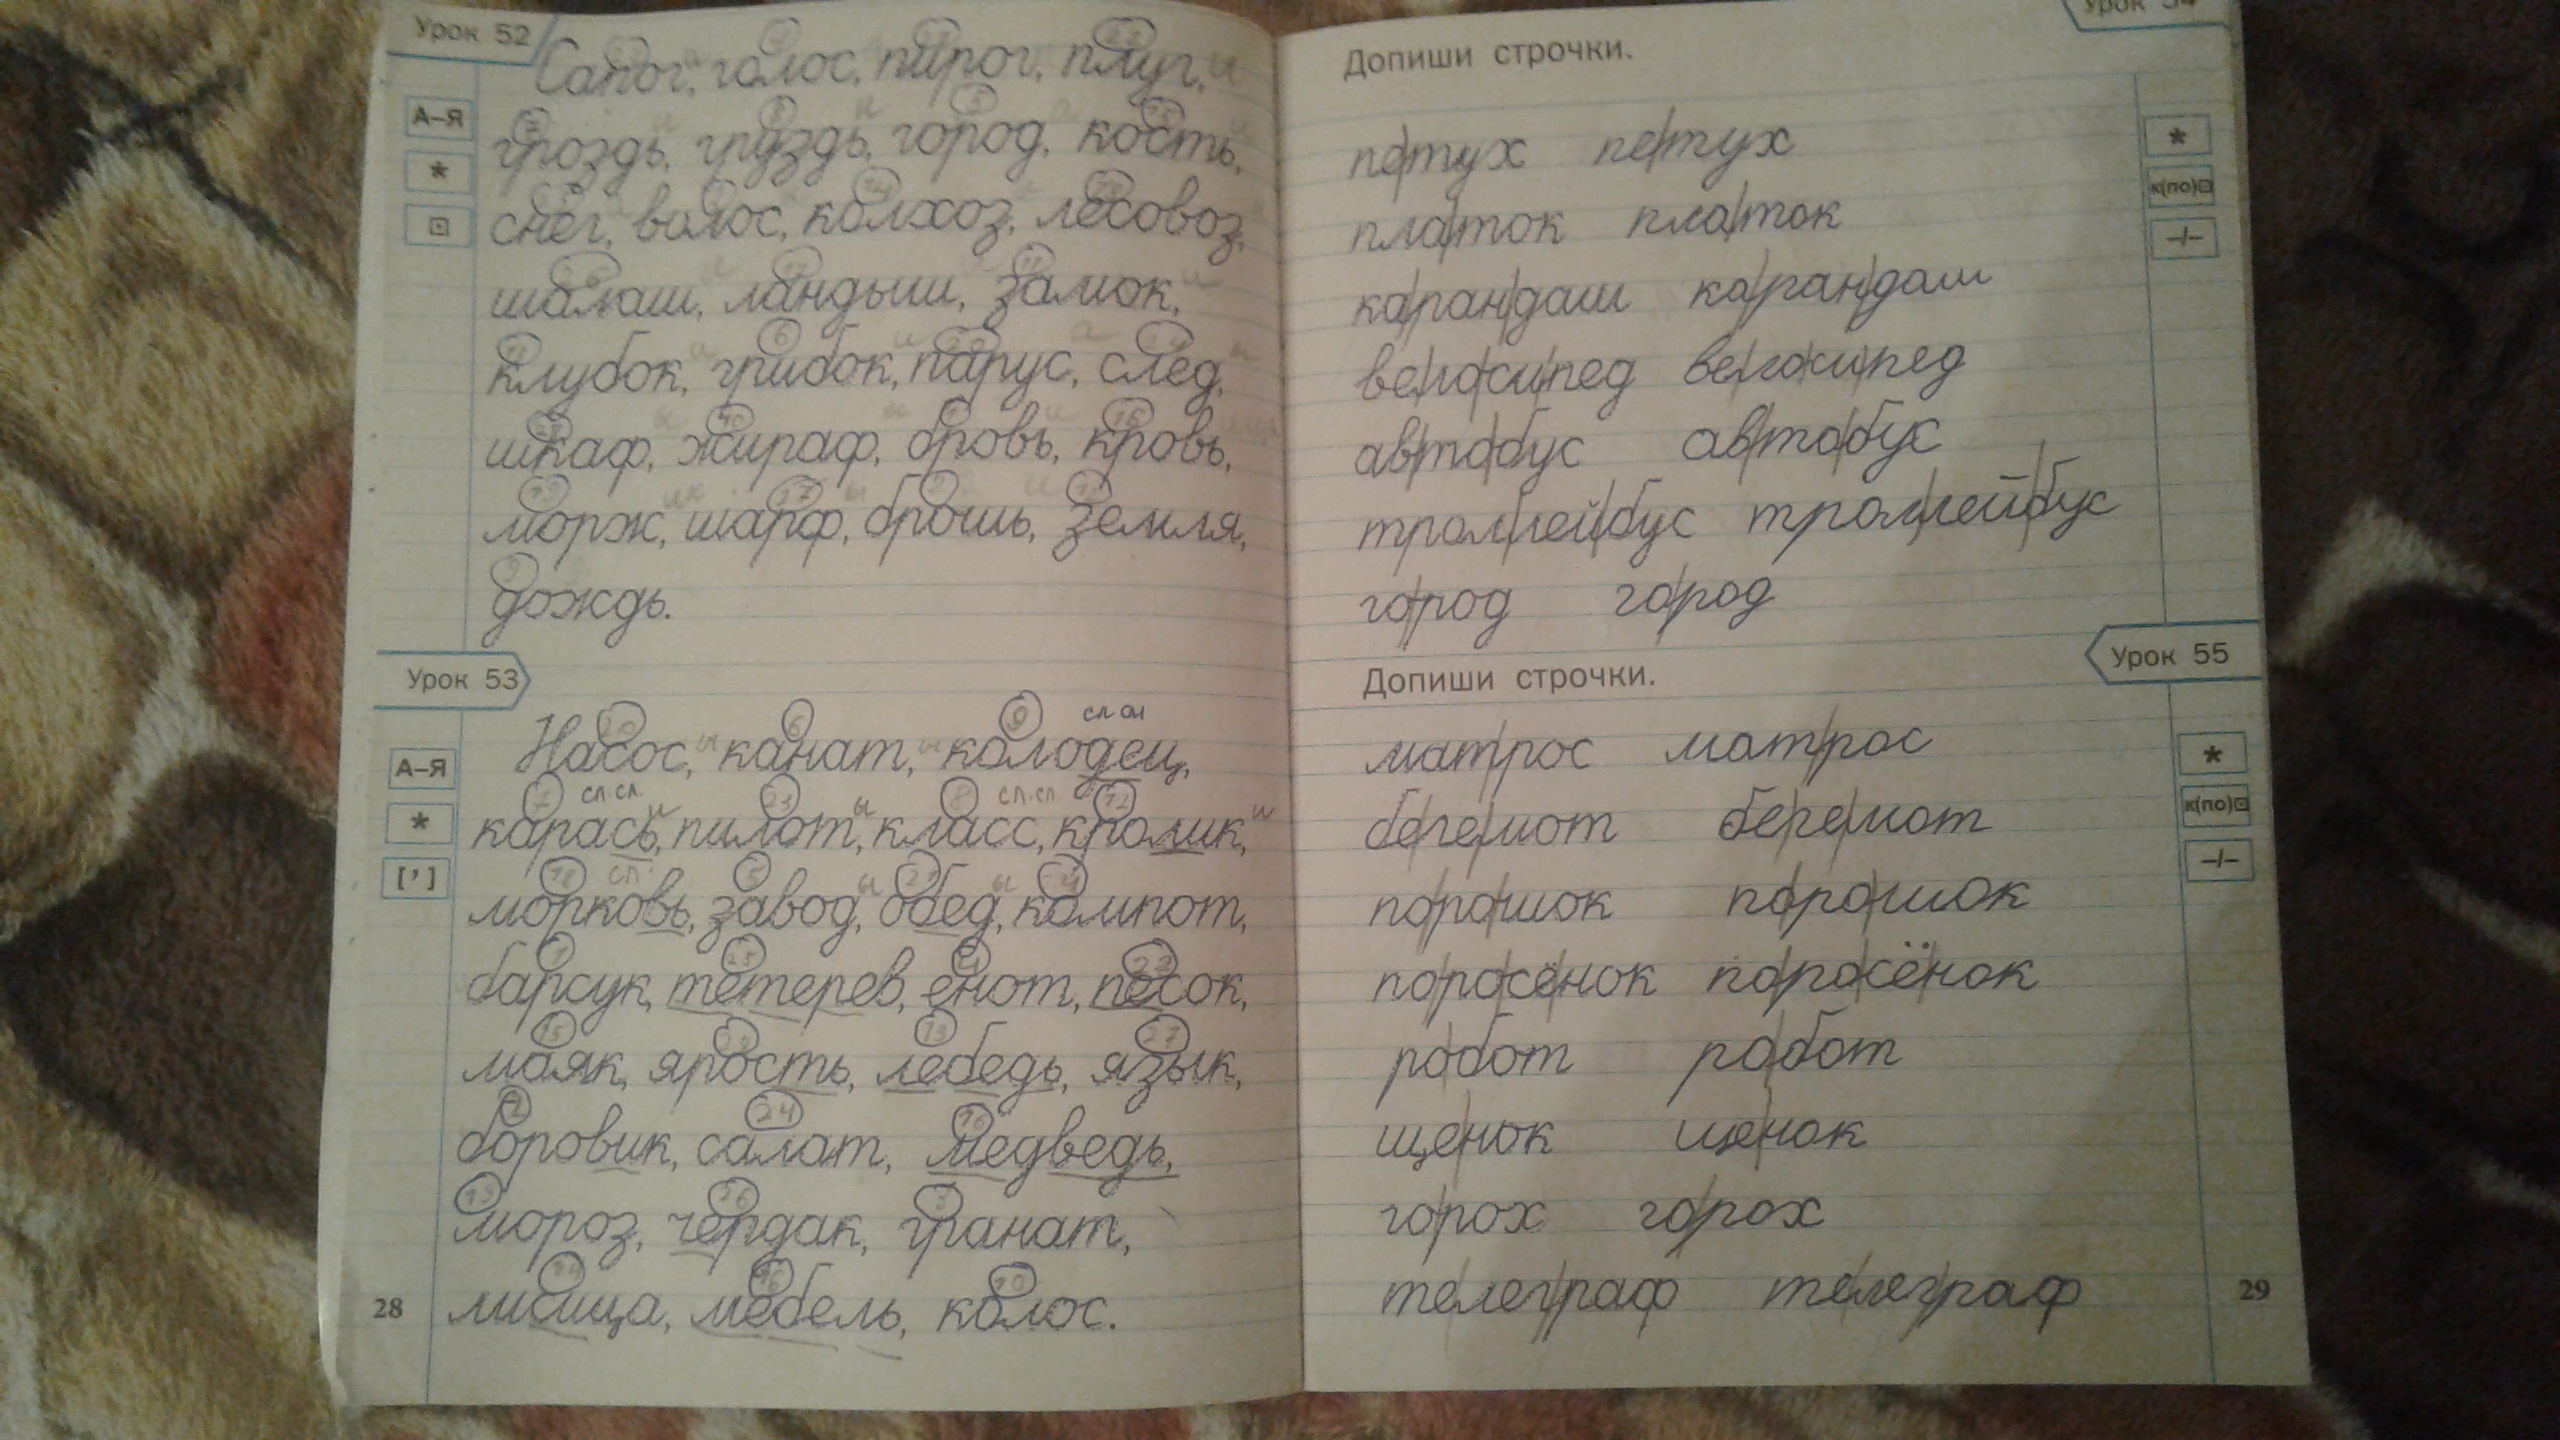 Урок 52
Сапог, голос, пирог, плуг,
гроздь, груздь, город, кость,
снег, волос, колхоз, лесовоз,
шалаш, ландыш, замок,
клубок, грибок, парус, след,
шкаф, жираф, бровь, кровь,
морж, шарф, брошь, земля,
дождь.
А–Я
*
Урок 53
Насос, канат, колодец,
карась, пилот, класс, кролик,
морковь, завод, обед, компот,
барсук, тетерев, енот, песок,
маяк, ярость, лебедь, язык,
боровик, салат, медведь,
мороз, чердак, гранат,
лисица, мебель, колос.
А–Я
*
[']
28
Урок 54
Допиши строчки.
пе/тух пе/тух
пла/ток пла/ток
ка/ран/даш ка/ран/даш
ве/ло/си/пед ве/ло/си/пед
ав/то/бус ав/то/бус
трол/лей/бус трол/лей/бус
го/род го/род
*
к(по)⊡
–/–
Урок 55
Допиши строчки.
мат/рос мат/рос
бе/ге/мот бе/ге/мот
по/ро/шок по/ро/шок
по/ро/сё/нок по/ро/сё/нок
ро/бот ро/бот
ще/нок ще/нок
го/рох го/рох
те/лег/раф те/лег/раф
*
к(по)⊡
–/–
29